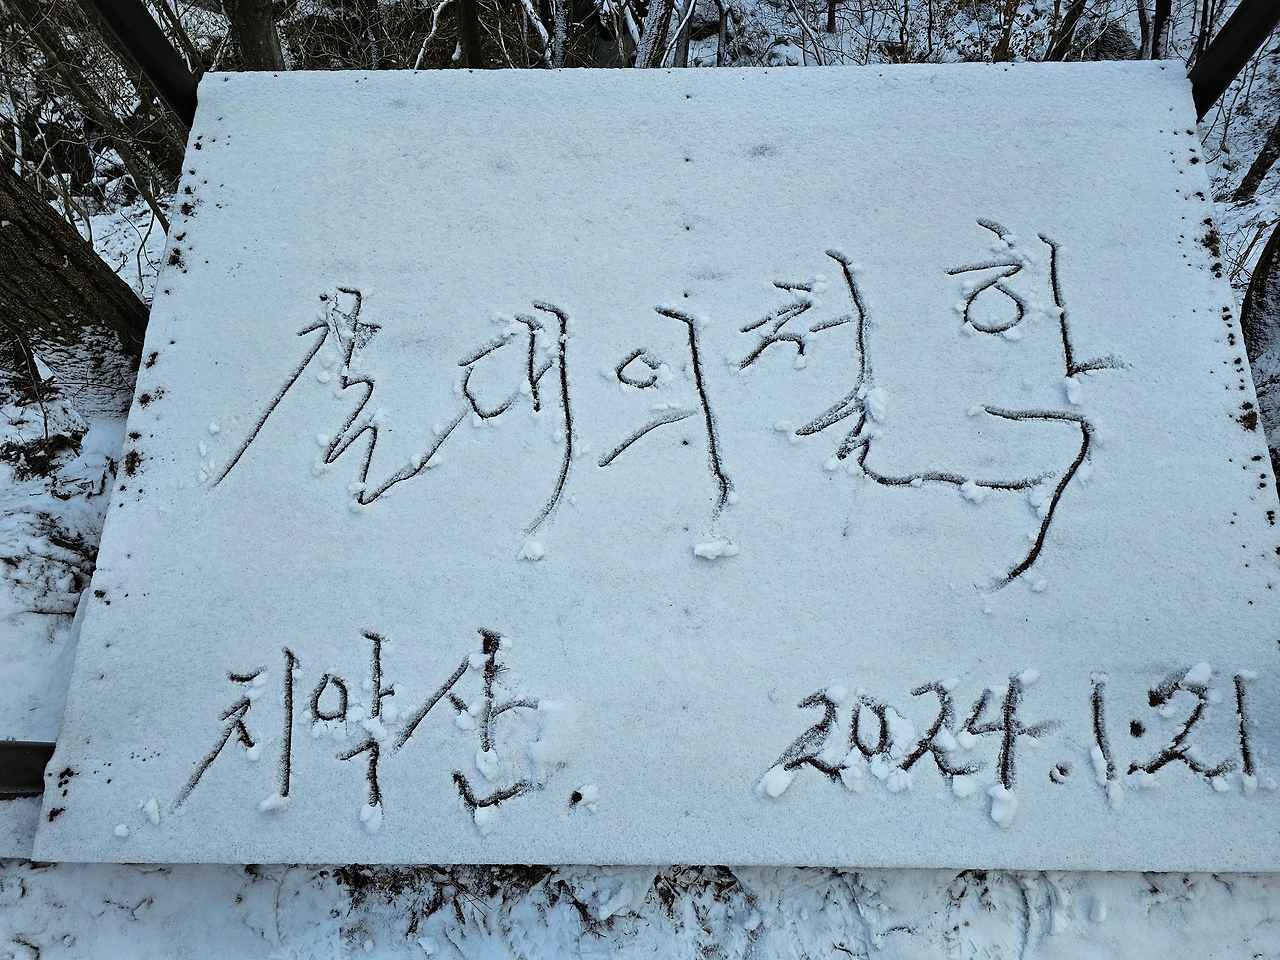 갈대의철학
치악산. 2024.1.21